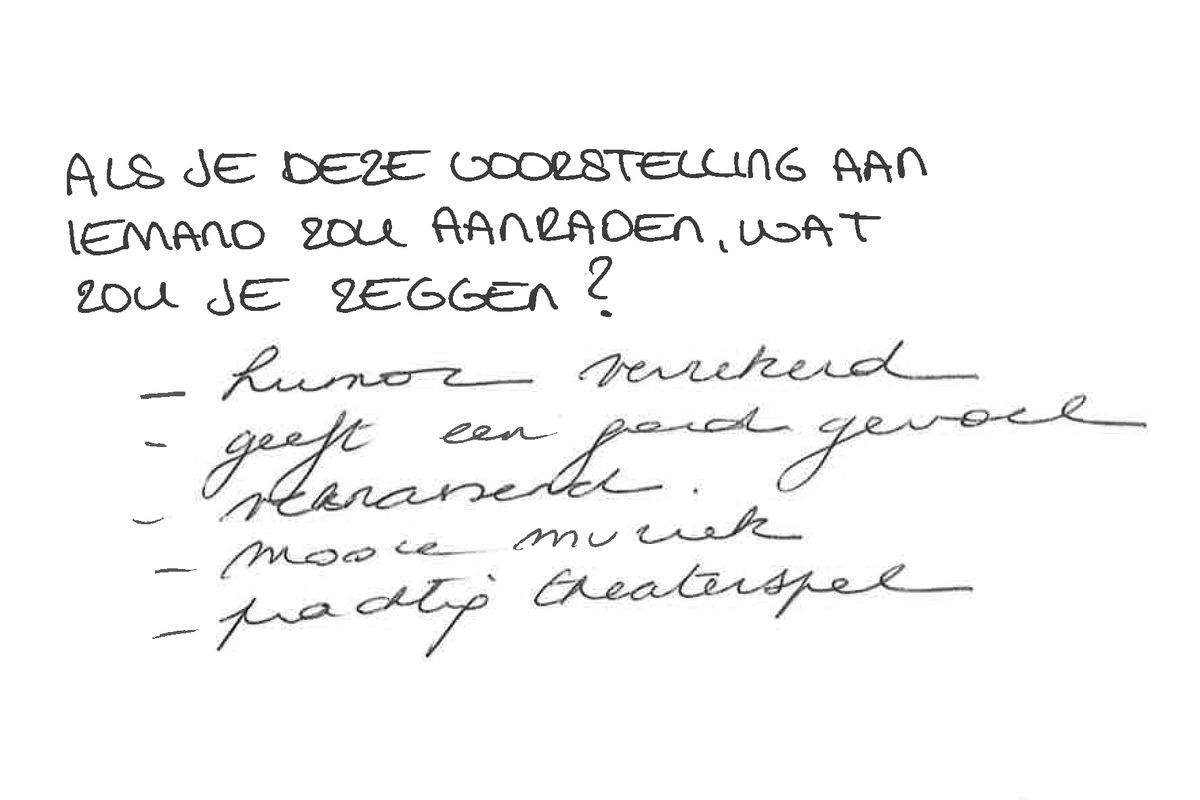 ALS JE DEZE VOORSTELLING AAN
IEMAND ZOU AANRADEN, WAT
ZOU JE ZEGGEN?
- humor verzekerd
- geeft een goed gevoel
- verrassend.
- mooie muziek
- prachtig theaterspel